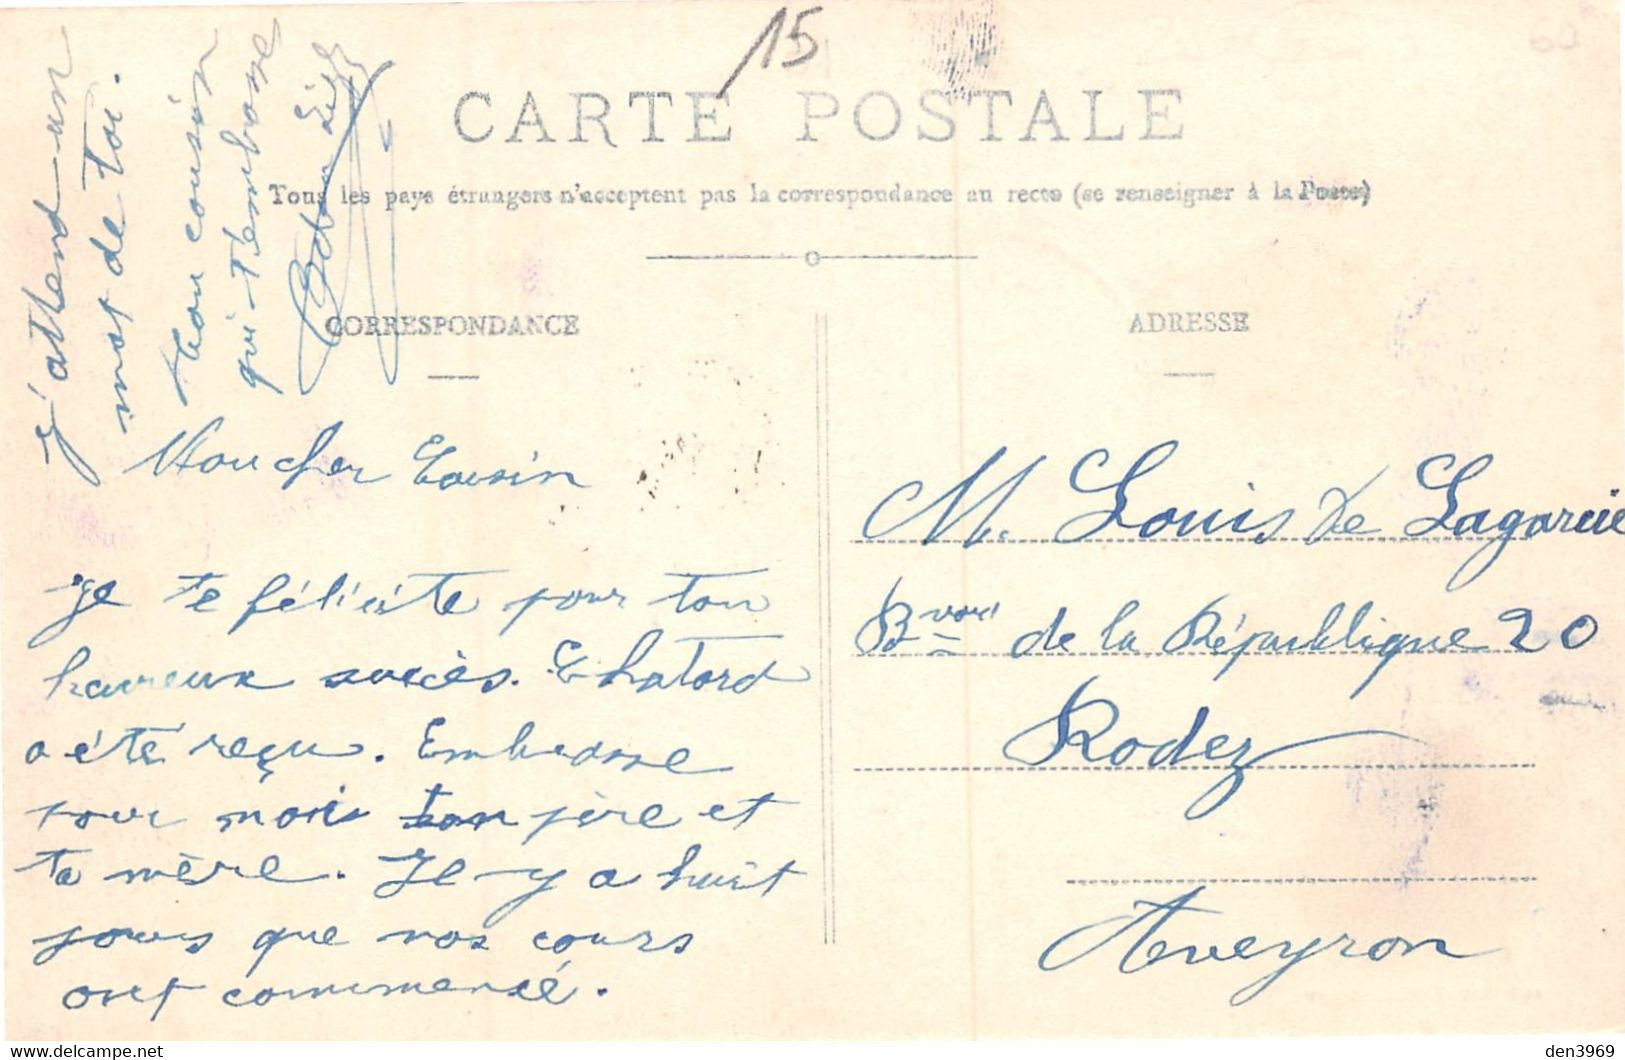 15
CARTE POSTALE
Tous les pays étrangers n'acceptent pas la correspondance au recto (se renseigner à la Poste)
CORRESPONDANCE
ADRESSE
Mon cher Cousin
Je te félicite pour ton
heureux succès. Chatard
a été reçu. Embrasse
pour moi ton père et
ta mère. Il y a huit
jours que nos cours
ont commencé.
j'attend un
mot de toi.
Mon cousin
qui t'embrasse
M. Louis de Lagarcie
Bvard de la République 20
Rodez
Aveyron
den3969